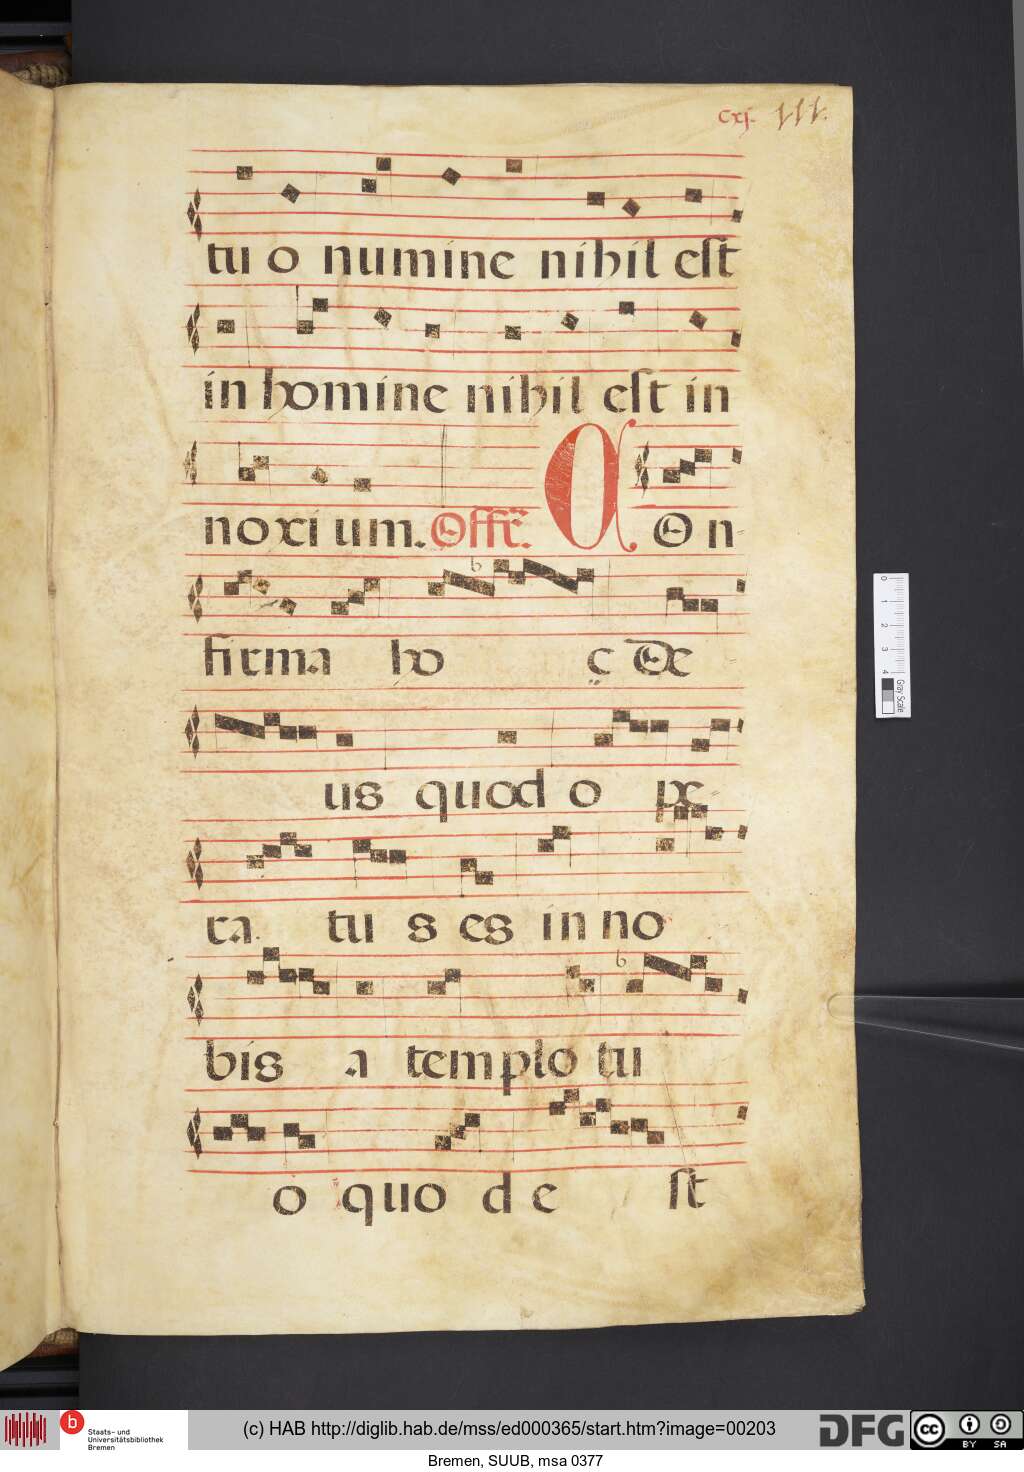 Cxj. 111.
tu o numine nihil est
in homine nihil est in
noxi um. Offr. 
C On-
firma ho c De
us quod o pe-
ra tu s es in no
bis a templo tu
o quo d e st
0 1 2 3 4
Gray Scale
b Staats- und Universitätsbibliothek Bremen
(c) HAB http://diglib.hab.de/mss/ed000365/start.htm?image=00203
DFG
cc BY SA
Bremen, SUUB, msa 0377